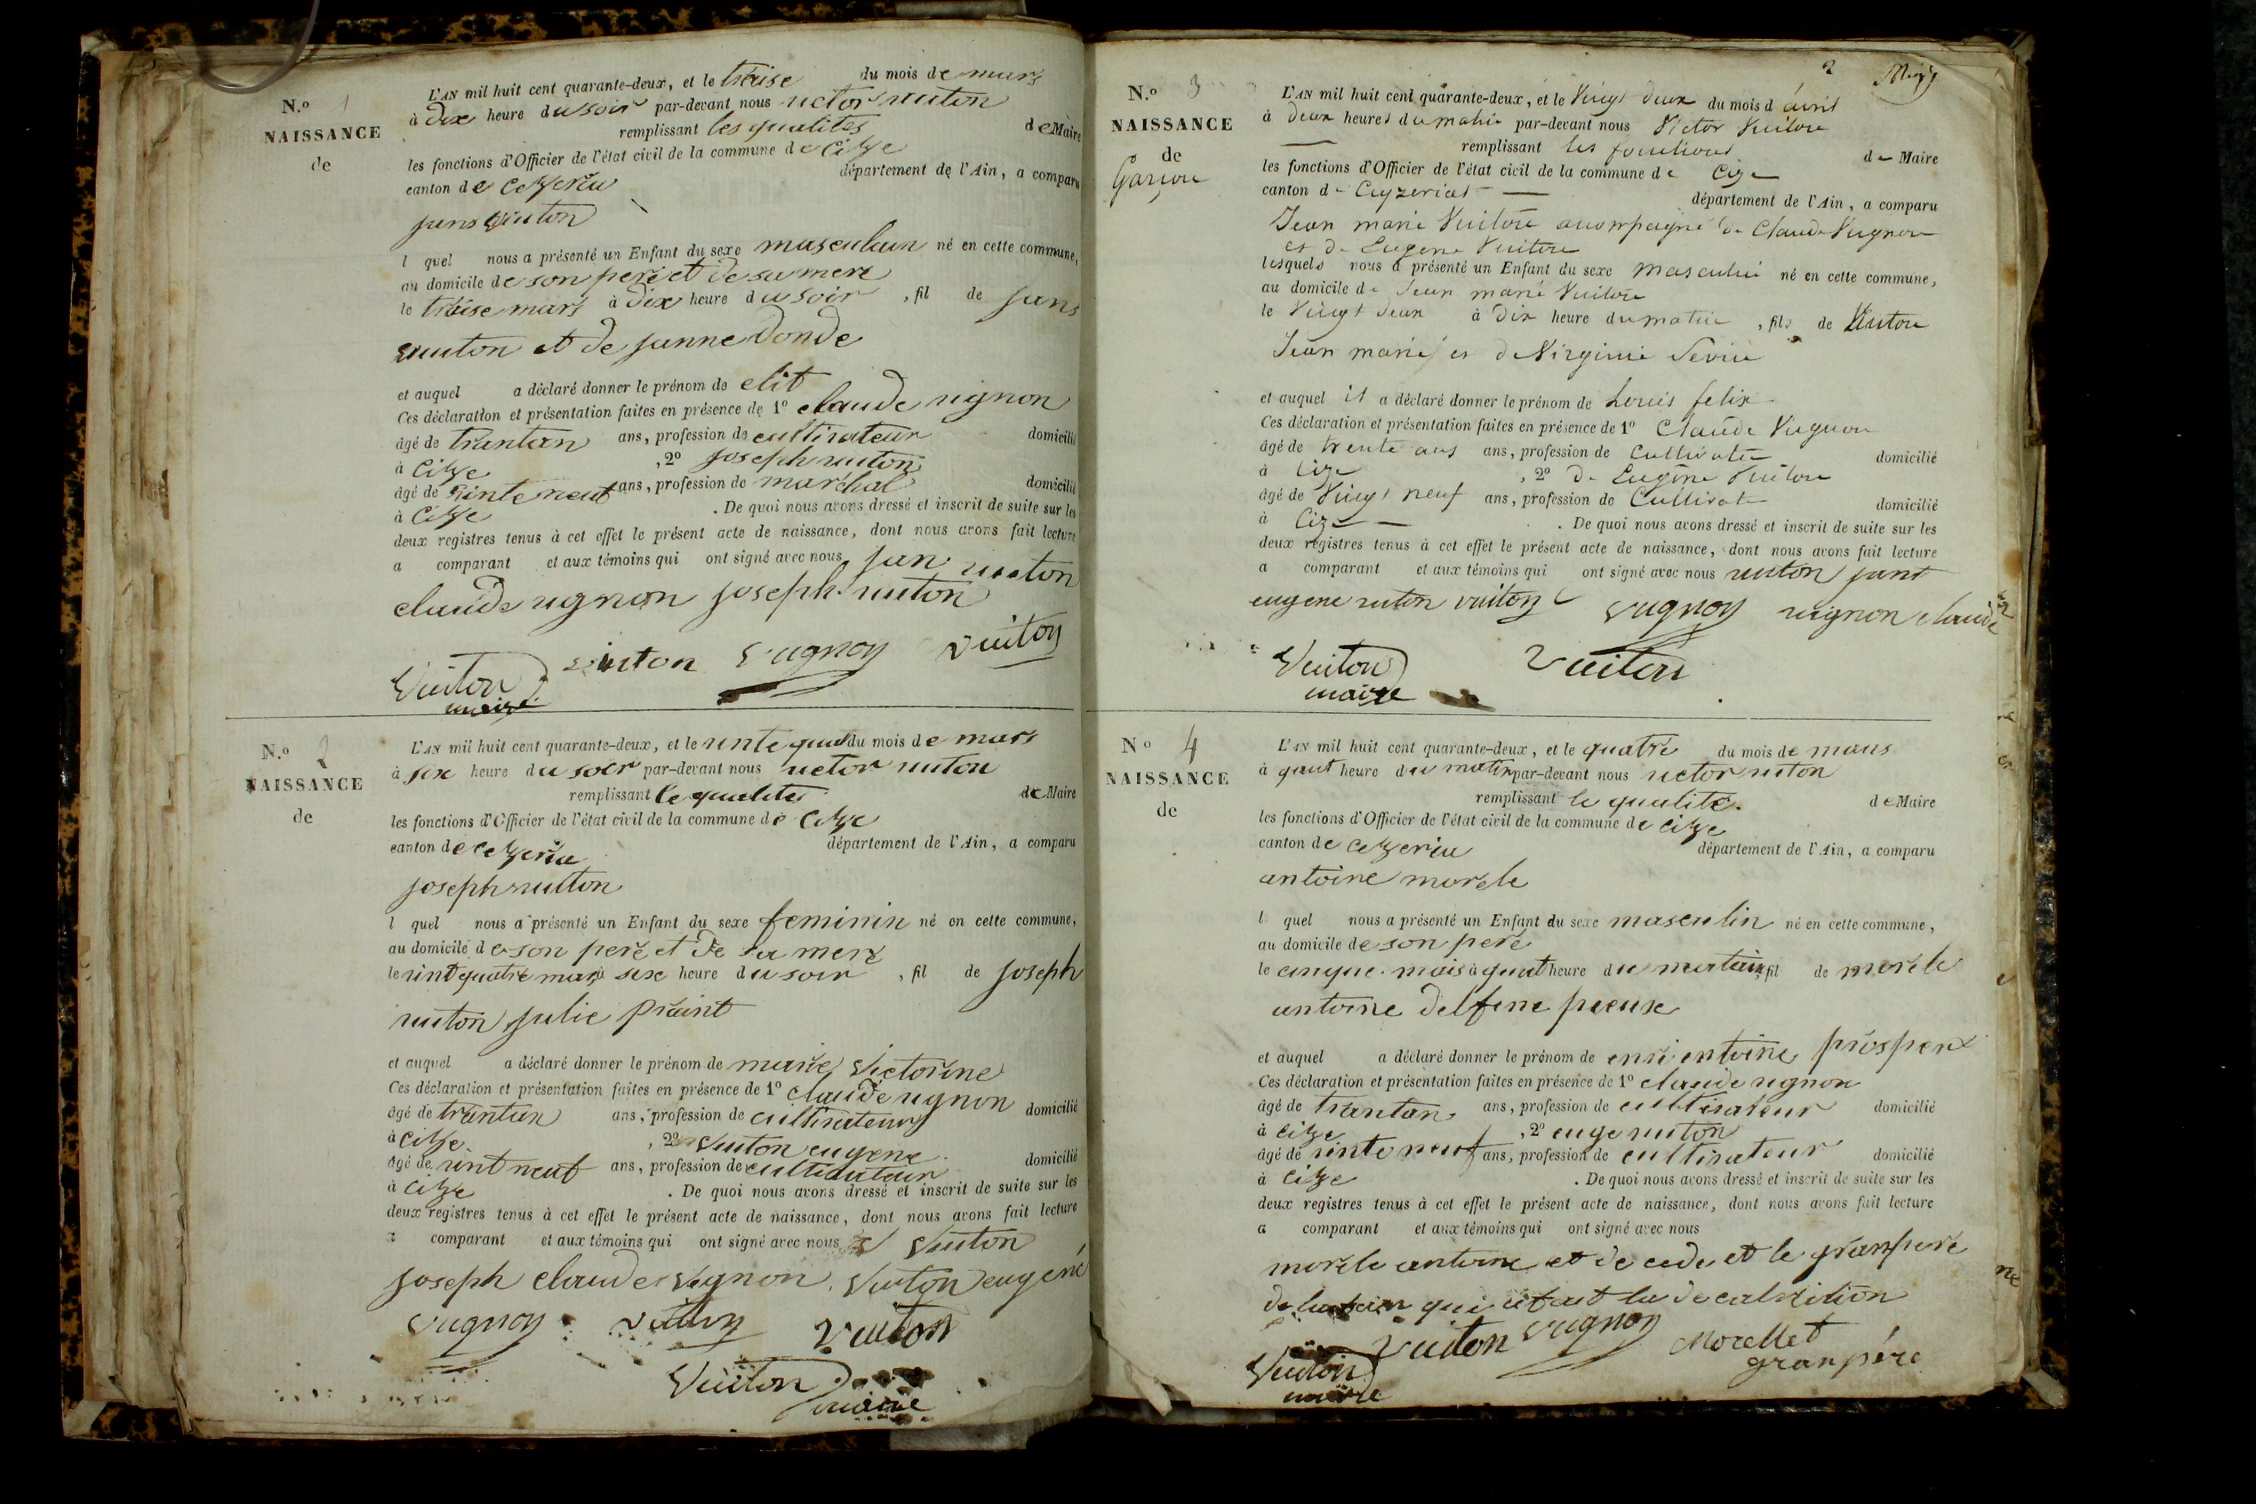 N.o 1
NAISSANCE
de
L'AN mil huit cent quarante-deux, et le treise du mois de mars
à dix heure du soir par-devant nous uictor uuiton
remplissant les qualites de Maire
les fonctions d'Officier de l'état civil de la commune de Citze
canton de Cetzeria département de l'Ain, a comparu
jans vuiton
l quel nous a présenté un Enfant du sexe masculain né en cette commune,
au domicile de son pere et de sa mere
le treise mars à dix heure du soir , fil de jans
vuiton et de janne donde
et auquel a déclaré donner le prénom de elit
Ces déclaration et présentation faites en présence de 1o claude uignon
âgé de trantan ans, profession de cultivateur domicilié
à Citze , 2o joseph uuiton
âgé de vinte neuf ans, profession de marchal domicilié
à Citze . De quoi nous avons dressé et inscrit de suite sur les
deux registres tenus à cet effet le présent acte de naissance, dont nous avons fait lecture
a comparant et aux témoins qui ont signé avec nous jan uuiton
claude ugnon joseph uuiton
Vuiton vuiton Vugnon Vuiton
maire
N.o 2
NAISSANCE
de
L'AN mil huit cent quarante-deux, et le uinte quat du mois de mars
à six heure du soir par-devant nous uictor uuiton
remplissant le qualites de Maire
les fonctions d'Officier de l'état civil de la commune de Citze
canton de Cetzeria département de l'Ain, a comparu
joseph uuiton
l quel nous a présenté un Enfant du sexe feminin né en cette commune,
au domicile de son pere et de sa mere
le uint quatre mars à six heure du soir , fil de joseph
uuiton julie praint
et auquel a déclaré donner le prénom de marie victorine
Ces déclaration et présentation faites en présence de 1o claude ugnon
âgé de trantan ans, profession de cultivateur domicilié
à Citze , 2o vuiton eugene
âgé de uint neuf ans, profession de cultivateur domicilié
à Citze . De quoi nous avons dressé et inscrit de suite sur les
deux registres tenus à cet effet le présent acte de naissance, dont nous avons fait lecture
a comparant et aux témoins qui ont signé avec nous Vuiton
joseph claude vignon. Vuiton eugene
Vugnon Vuiton Vuiton
Vuiton
maire
2
N.o 3
NAISSANCE
de
Garçon
L'AN mil huit cent quarante-deux, et le Vingt deux du mois d avril
à deux heures du matin par-devant nous Victor Vuiton
remplissant les fonctions de Maire
les fonctions d'Officier de l'état civil de la commune de Cize
canton de Ceyzeriat département de l'Ain, a comparu
Jean marie Vuiton accompagné de Claude Vugnon
et de Eugene Vuiton
lesquels nous a présenté un Enfant du sexe masculin né en cette commune,
au domicile de Jean marie Vuiton
le Vingt deux à dix heure du matin , fils de Vuiton
Jean marie et de Virginie Sevin
et auquel il a déclaré donner le prénom de Louis felix
Ces déclaration et présentation faites en présence de 1o Claude Vugnon
âgé de trente ans ans, profession de Cultivate domicilié
à Cize , 2o de Eugène Vuiton
âgé de Vingt neuf ans, profession de Cultivat domicilié
à Cize . De quoi nous avons dressé et inscrit de suite sur les
deux registres tenus à cet effet le présent acte de naissance, dont nous avons fait lecture
a comparant et aux témoins qui ont signé avec nous uuiton jant
eugene uuton vuiton Vugnon uignon claude
Vuiton Vuiton
maire
No 4
NAISSANCE
de
L'AN mil huit cent quarante-deux, et le quatre du mois de maus
à quat heure du matin par-devant nous uictor uuiton
remplissant le qualite. de Maire
les fonctions d'Officier de l'état civil de la commune de Citze
canton de Cetzeria département de l'Ain, a comparu
antoine morele
l quel nous a présenté un Enfant du sexe masculin né en cette commune,
au domicile de son pere
le cinque mais à quat heure du matain , fil de morele
antoine delfine preux
et auquel a déclaré donner le prénom de enri entoine prosper
Ces déclaration et présentation faites en présence de 1o claude ugnon
âgé de trantan ans, profession de cultivateur domicilié
à Citze , 2o euge uuiton
âgé de uinte neuf ans, profession de cultivateur domicilié
à Citze . De quoi nous avons dressé et inscrit de suite sur les
deux registres tenus à cet effet le présent acte de naissance, dont nous avons fait lecture
a comparant et aux témoins qui ont signé avec nous
morele antoine et de cede et le granpere
qui
Vuiton Vuiton Vugnon Morellet
maire granpére